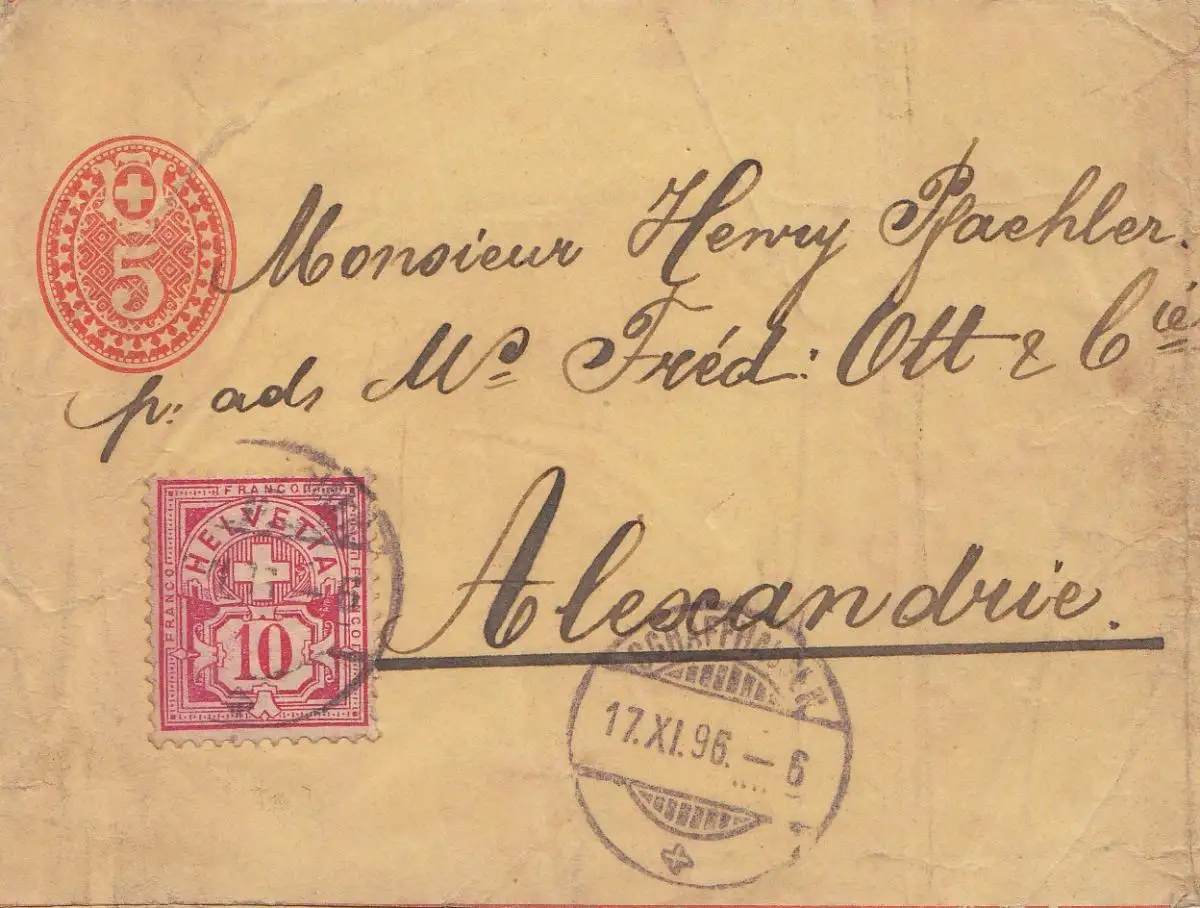 5
Monsieur Henry Pfaehler.
p: ads Mrs Fréd: Ott & Cie
Alexandrie.
FRANCO
FRANCO
FRANCO
HELVETIA
10
SCHAFFHAUSEN
17.XI.96. – 6